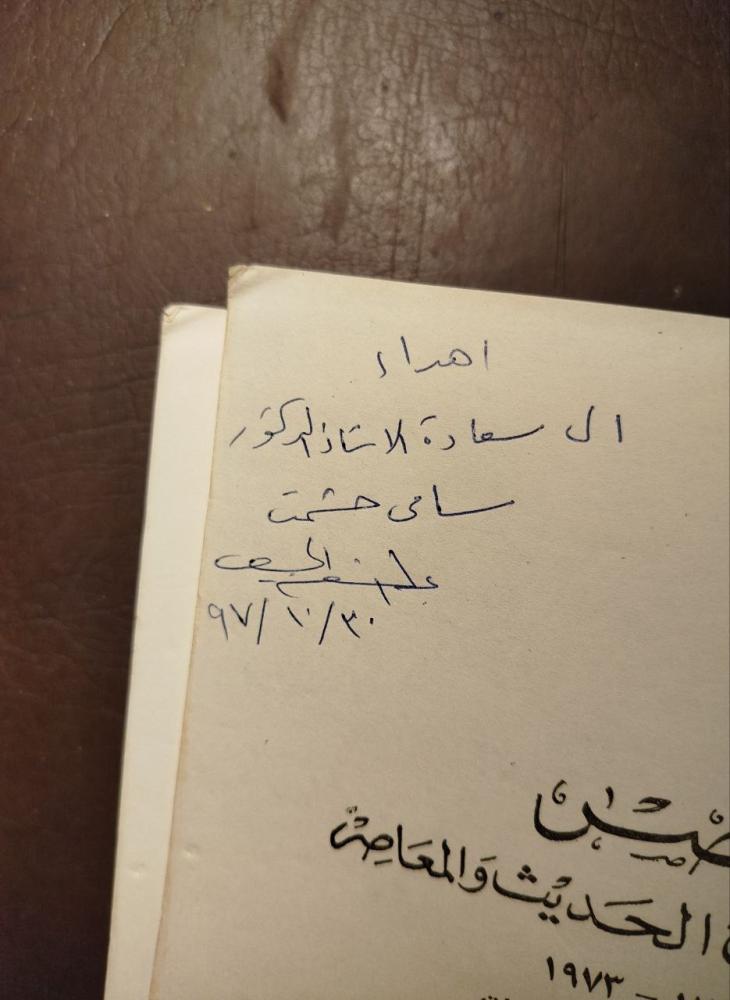 اهداء
ال سعادة الاستاذ الدكتور
سامى حشمت
٩٧/١٠/٣٠
الحديث والمعاصر
١٩٧٣